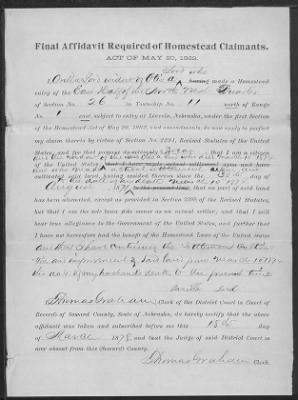 Final Affidavit Required of Homestead Claimants.
ACT OF MAY 20, 1862.
Lord who
I, widow of having made a Homestead
entry of the East Half of the North West Quarter
of Section No. 26 in Township No. 11 north of Range
No. 1 and subject to entry at Lincoln, Nebraska, under the first Section
of the Homestead Act of May 20, 1862, and amendments, do now apply to perfect
my claim thereto by virtue of Section No. 2291, Revised Statutes of the
United States; and for that purpose do solemnly that I am a citizen
of the United States
cultivated said land, having resided thereon since the
day of 187 that no part of said land
has been alienated, except as provided in Section 2288 of the Revised Statutes,
but that I am the sole bona fide owner as an actual settler; and that I will
bear true allegiance to the Government of the United States, and further that
I have not heretofore had the benefit of the Homestead Laws of the United States
and that I have continued the settlement and
improvement of said land since March 10 1877
the day of my husband's death to the present time
Lord
Thomas Graham, Clerk of the District Court in Court of
Record of Seward County, State of Nebraska, do hereby certify that the above
affidavit was taken and subscribed before me this 15th day
of March 1879, and that the Judge of said District Court is
now absent from this (Seward) County.
Thomas Graham Clerk